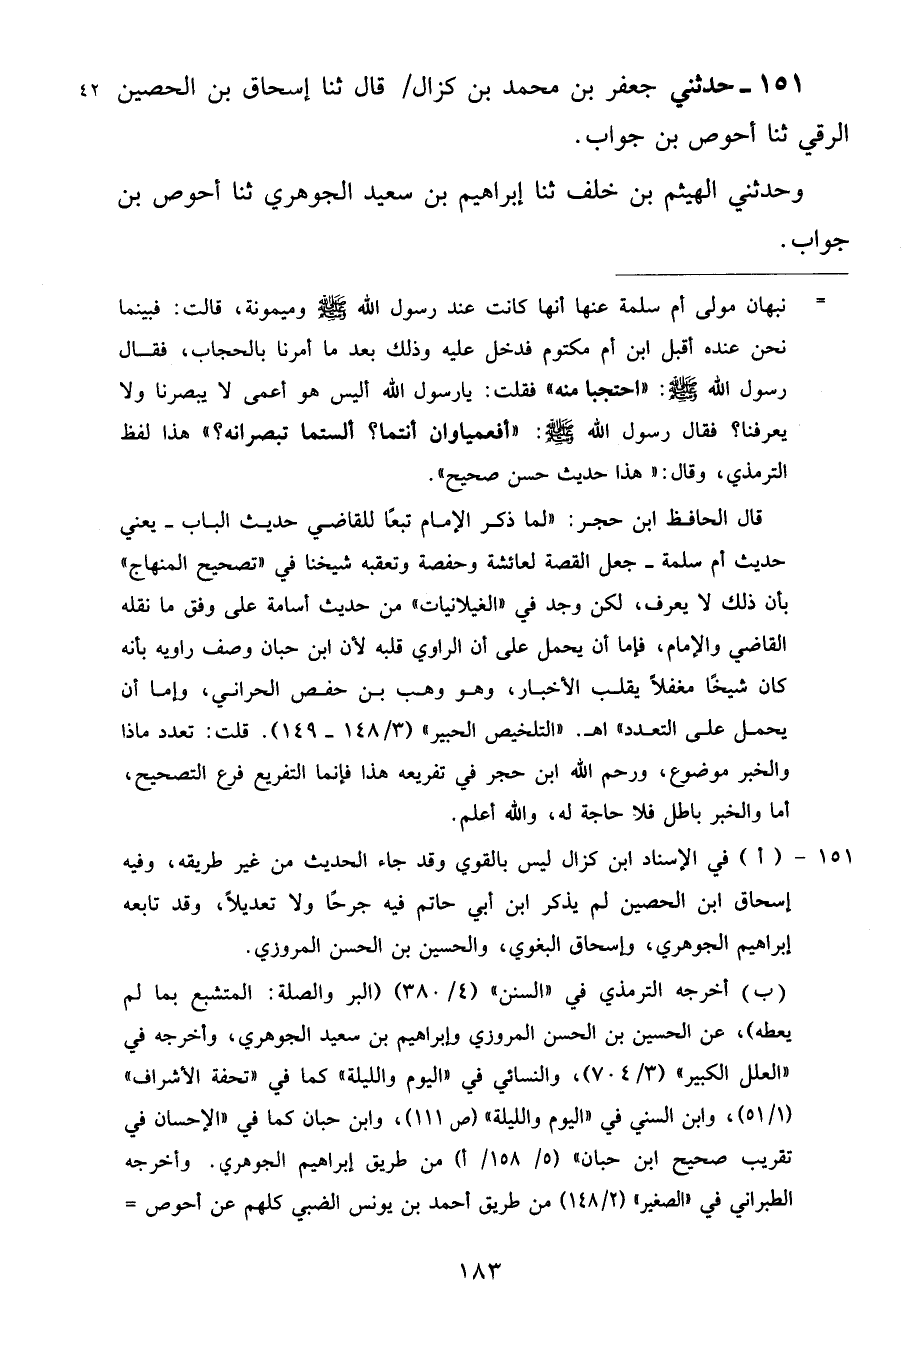 ١٥١ ـ حدثني جعفر بن محمد بن كزال/ قال ثنا إسحاق بن الحصين ٤٢
الرقي ثنا أحوص بن جواب.
وحدثني الهيثم بن خلف ثنا إبراهيم بن سعيد الجوهري ثنا أحوص بن
جواب.
= نبهان مولى أم سلمة عنها أنها كانت عند رسول الله ﷺ وميمونة، قالت: فبينما
نحن عنده أقبل ابن أم مكتوم فدخل عليه وذلك بعد ما أمرنا بالحجاب، فقـال
رسول الله ﷺ: «احتجبا منه» فقلت: يارسول الله أليس هو أعمى لا يبصرنا ولا
يعرفنا؟ فقال رسول الله ﷺ: «أفعمياوان أنتما؟ ألستما تبصرانه؟» هذا لفظ
الترمذي، وقال: « هذا حديث حسن صحيح».
قال الحافظ ابن حجر: «لما ذكر الإمام تبعًا للقاضي حديث الباب ـ يعني
حديث أم سلمة ـ جعل القصة لعائشة وحفصة وتعقبه شيخنا في «تصحيح المنهاج»
بأن ذلك لا يعرف، لكن وجد في «الغيلانيات» من حديث أسامة على وفق ما نقله
القاضي والإمام، فإما أن يحمل على أن الراوي قلبه لأن ابن حبان وصف راويه بأنه
كان شيخًا مغفلاً يقلب الأخبار، وهو وهب بن حفص الحراني، وإما أن
يحمل على التعدد» اهـ. «التلخيص الحبير» (١٤٨/٣ ـ ١٤٩). قلت: تعدد ماذا
والخبر موضوع، ورحم الله ابن حجر في تفريعه هذا فإنما التفريع فرع التصحيح،
أما والخبر باطل فلا حاجة له، والله أعلم.
١٥١ - ( أ ) في الإسناد ابن كزال ليس بالقوي وقد جاء الحديث من غير طريقه، وفيه
إسحاق ابن الحصين لم يذكر ابن أبي حاتم فيه جرحًا ولا تعديلاً، وقد تابعه
إبراهيم الجوهري، وإسحاق البغوي، والحسين بن الحسن المروزي.
(ب) أخرجه الترمذي في «السنن» (٣٨٠/٤) (البر والصلة: المتشبع بما لم
يعطه)، عن الحسين بن الحسن المروزي وإبراهيم بن سعيد الجوهري، وأخرجه في
«العلل الكبير» (٧٠٤/٣)، والنسائي في «اليوم والليلة» كما في «تحفة الأشراف»
(٥١/١)، وابن السني في «اليوم والليلة» (ص ١١١)، وابن حبان كما في «الإحسان في
تقريب صحيح ابن حبان» (٥/ ١٥٨/ أ) من طريق إبراهيم الجوهري. وأخرجه
الطبراني في «الصغير» (١٤٨/٢) من طريق أحمد بن يونس الضبي كلهم عن أحوص =
١٨٣